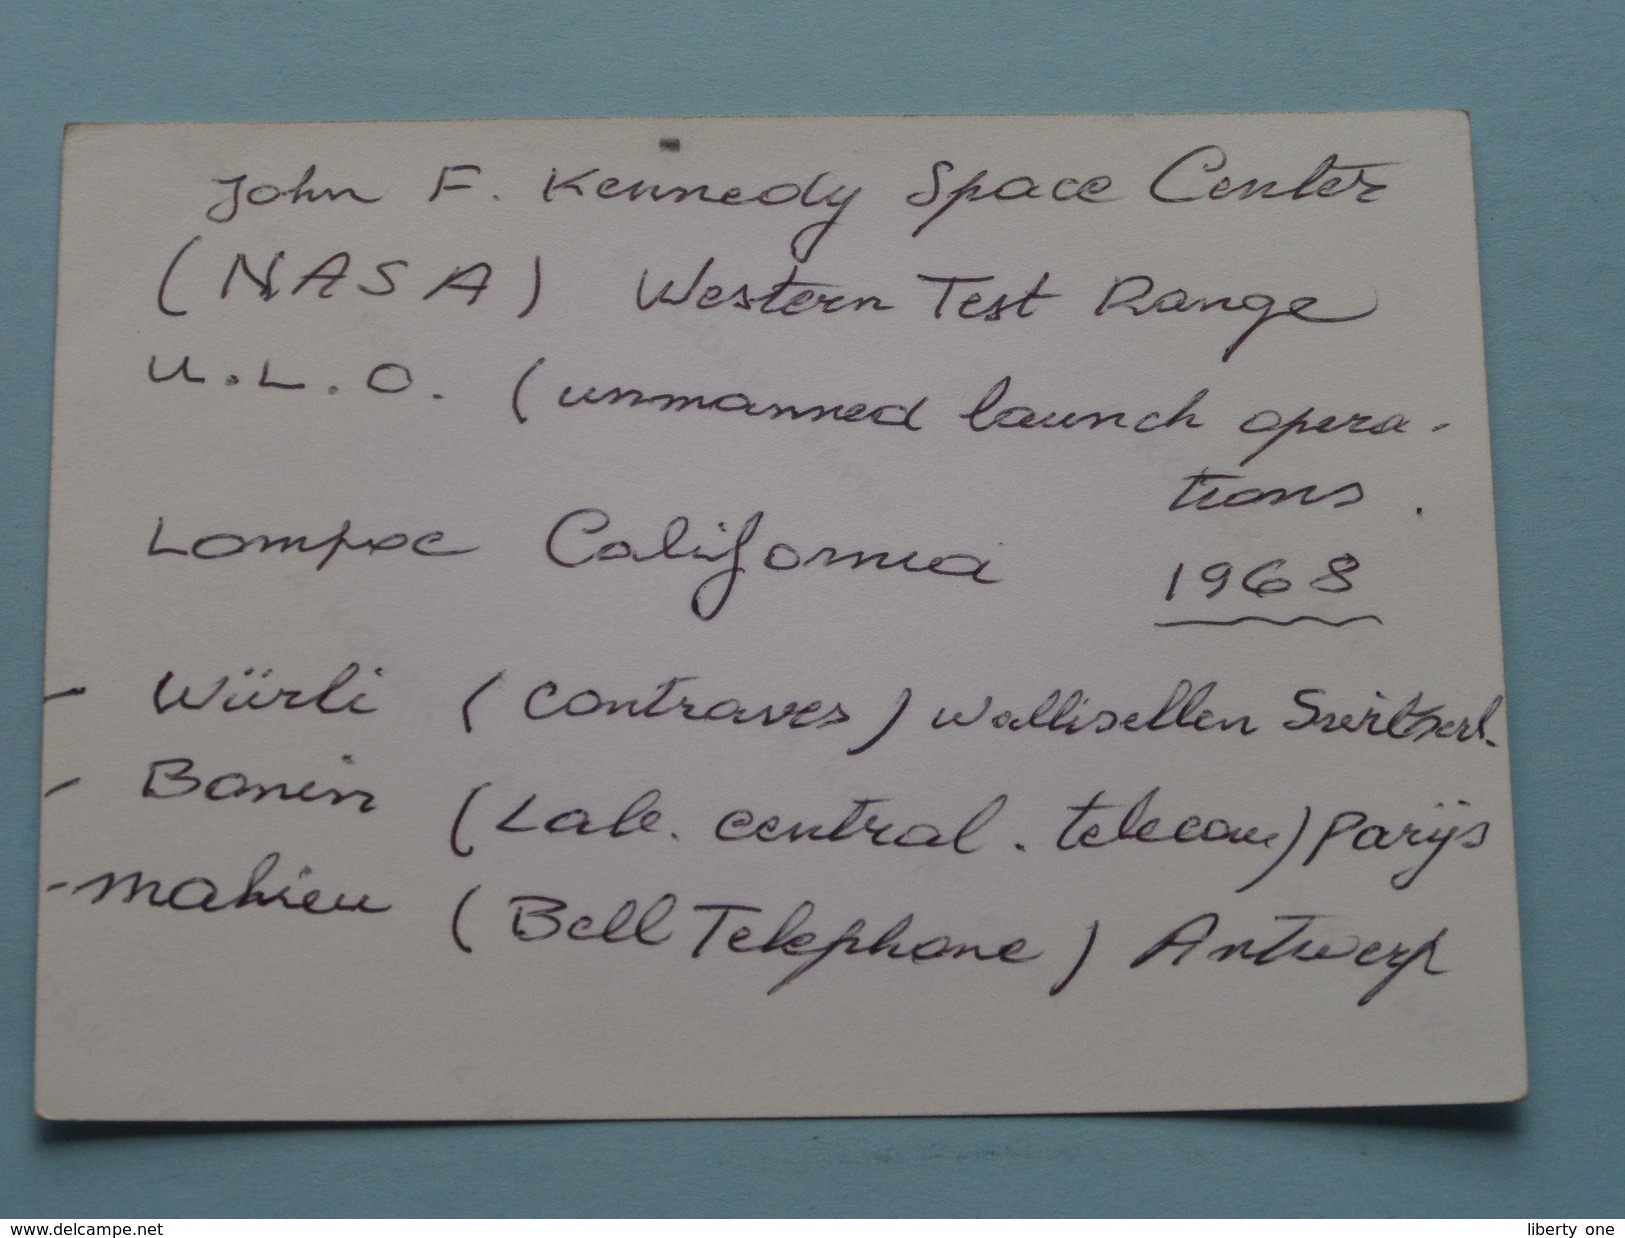 John F. Kennedy Space Center
(NASA) Western Test Range
U.L.O. (unmanned launch opera-
tions.
Lompoc California 1968
- Würli (Contraves) Wallisellen Switserl.
- Bonin (Lab. central. telecom) Parijs
- Mahieu (Bell Telephone) Antwerp
www.delcampe.net
liberty one